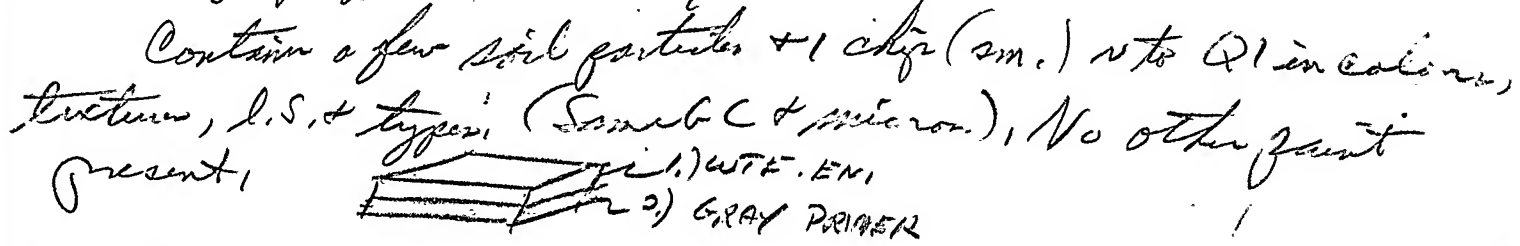 Contain a few soil particles + 1 chip (sm.) ~ to Q1 in colors,
textures, l.s. & types. (Same GC & micros.). No other paint
present.
1.) WTE. EN.
2.) GRAY PRIMER